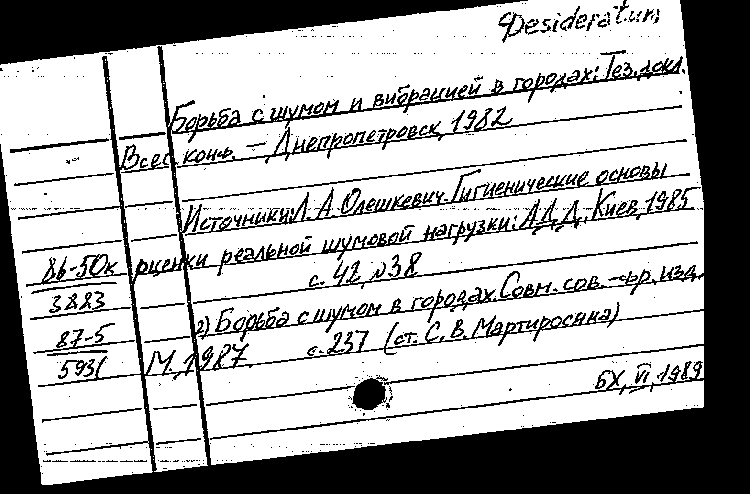 Desideratum
Борьба с шумом и вибрацией в городах: Тез. докл.
Всес. конф. — Днепропетровск, 1982
Источники: Л. А. Олешкевич. Гигиенические основы
86-50к оценки реальной шумовой нагрузки: АД, Д, Киев, 1985
3883 с. 42, №38
87-5 2) Борьба с шумом в городах. Совм. сов.-фр. изд.
5931 М., 1987. с. 237 (ст. С. В. Мартиросяна)
БХ, VI, 1989